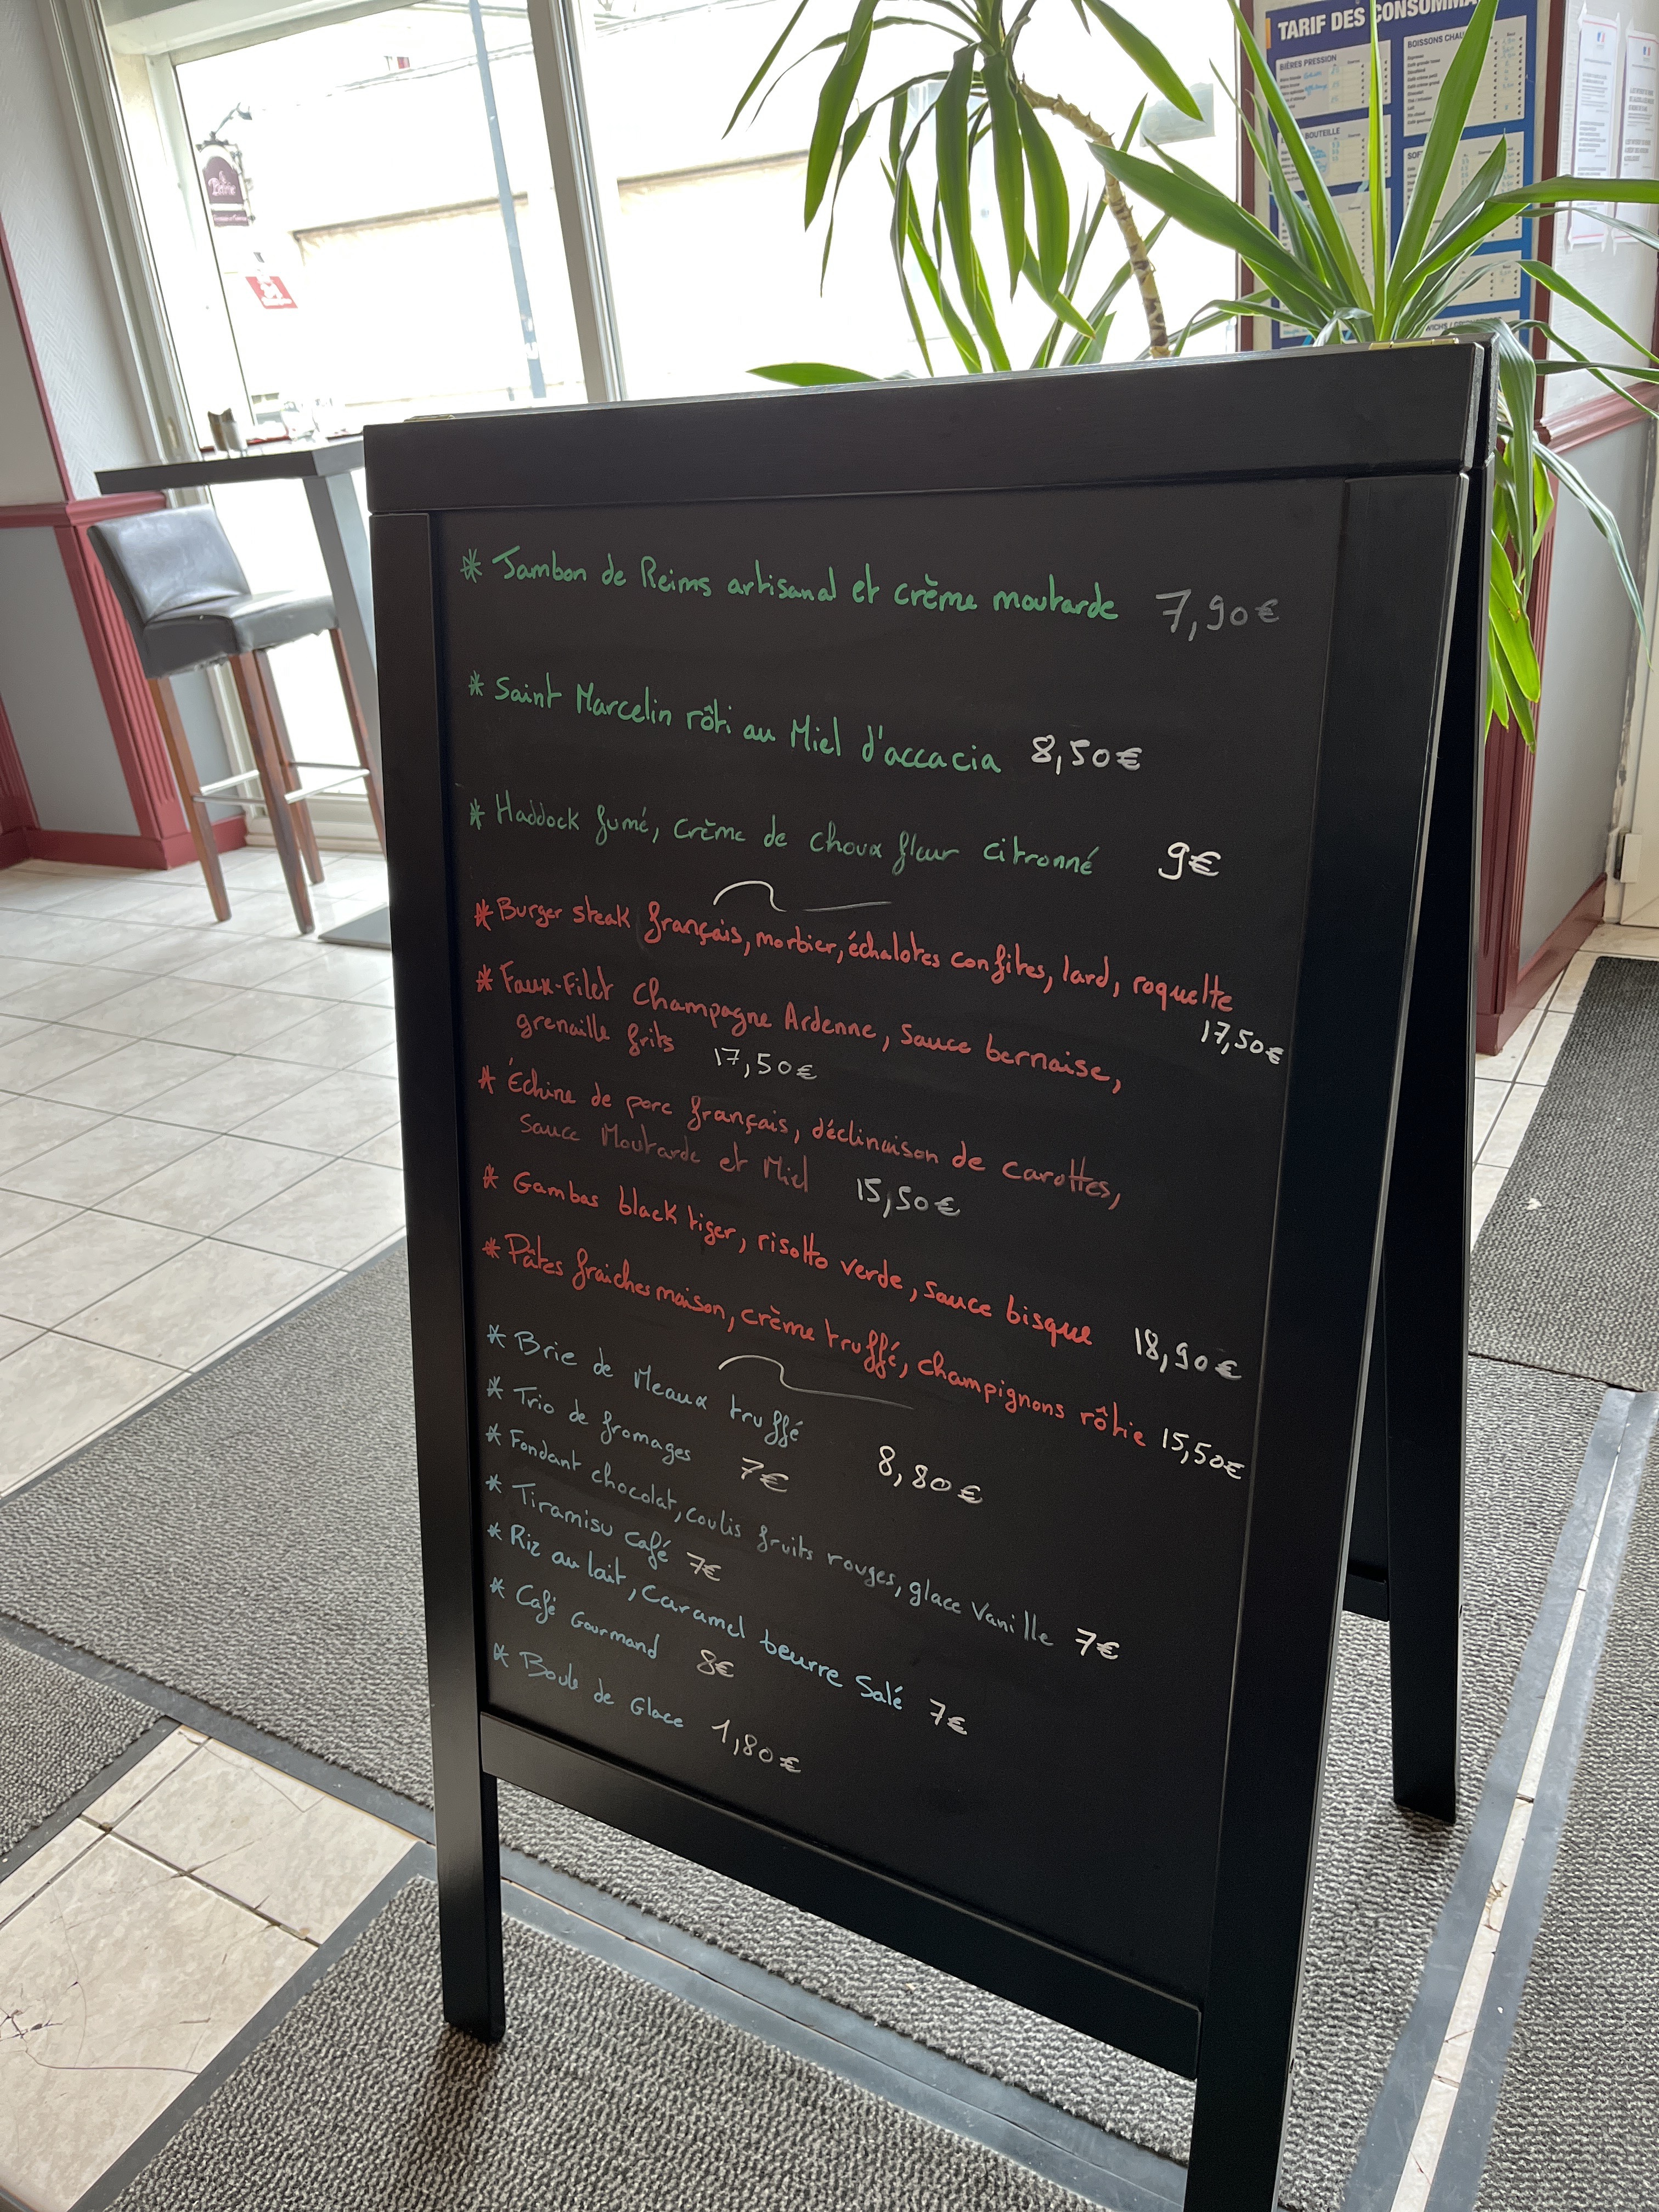 TARIF DES CONSOMMA
BIÈRES PRESSION
BOISSONS CHAU
BOUTEILLE
* Jambon de Reims artisanal et crème moutarde 7,90€
* Saint Marcelin rôti au Miel d'accacia 8,50€
* Haddock fumé, crème de choux fleur citronné 9€
* Burger steak français, morbier, échalotes confites, lard, roquette
17,50€
* Faux-Filet Champagne Ardenne, sauce bernaise,
grenaille frits 17,50€
* Échine de porc français, déclinaison de carottes,
sauce Moutarde et Miel 15,50€
* Gambas black tiger, risotto verde, sauce bisque 18,90€
* Pâtes fraiches maison, crème truffé, champignons rôtie 15,50€
* Brie de Meaux truffé 8,80€
* Trio de fromages 7€
* Fondant chocolat, coulis fruits rouges, glace Vanille 7€
* Tiramisu café 7€
* Riz au lait, Caramel beurre Salé 7€
* Café Gourmand 8€
* Boule de Glace 1,80€